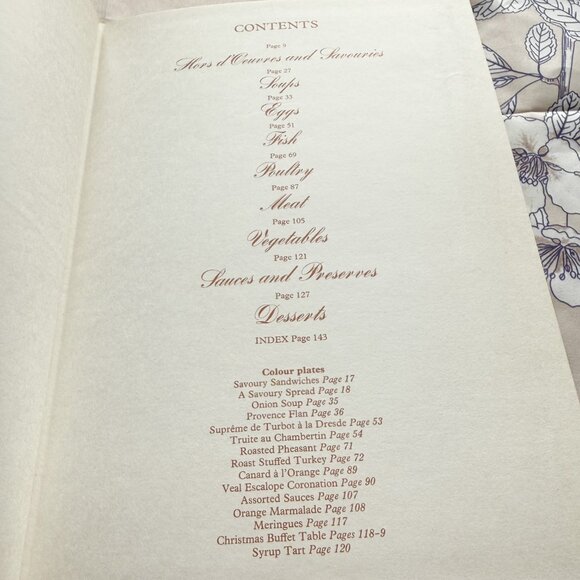 CONTENTS
Page 9
Hors d'Oeuvres and Savouries
Page 27
Soups
Page 33
Eggs
Page 51
Fish
Page 69
Poultry
Page 87
Meat
Page 105
Vegetables
Page 121
Sauces and Preserves
Page 127
Desserts
INDEX Page 143
Colour plates
Savoury Sandwiches Page 17
A Savoury Spread Page 18
Onion Soup Page 35
Provence Flan Page 36
Suprême de Turbot à la Dresde Page 53
Truite au Chambertin Page 54
Roasted Pheasant Page 71
Roast Stuffed Turkey Page 72
Canard à l'Orange Page 89
Veal Escalope Coronation Page 90
Assorted Sauces Page 107
Orange Marmalade Page 108
Meringues Page 117
Christmas Buffet Table Pages 118–9
Syrup Tart Page 120